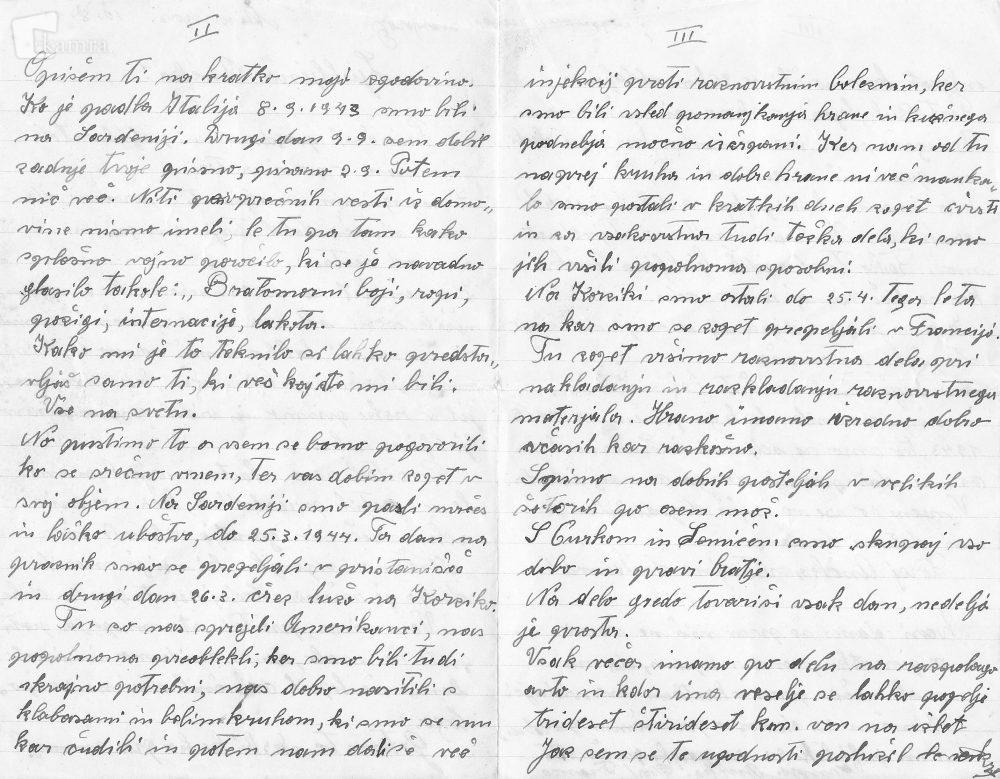 kamra
II
Opišem ti na kratko mojo zgodovino.
Ko je padla Italija 8.9.1943 smo bili
na Sardeniji. Drugi dan 9.9. sem dobil
zadnje tvoje pismo, pisano 2.9. Potem
nič več. Niti posvprečnih vesti iz domo„
vine nismo imeli, le tu pa tam kako
splošno vojno poročilo, ki se je navadno
glasilo takole: „Bratomorni boji, ropi,
požigi, internacije, lakota.
Kako mi je to teknilo si lahko predsta„
vljaš samo ti, ki veš kaj ste mi bili.
Vse na svetu.
No pustimo to o vsem se bomo pogovorili
ko se srečno vrnem, ter vas dobim zopet v
svoj objem. Na Sardeniji smo pasli mrčes
in laško uboštvo, do 25.3.1944. Ta dan na
praznik smo se prepeljali v pristanišče
in drugi dan 26.3. čez lužo na Korziko.
Tu so nas sprejeli Amerikanci, nas
popolnoma preoblekli, kar smo bili tudi
skrajno potrebni, nas dobro nasitili s
klobasami in belim kruhom, ki smo se mu
kar čudili in potem nam dali še več
III
injekcij proti raznovrstnim boleznim, ker
smo bili vsled pomanjkanja hrane in kužnega
podnebja močno izčrpani. Ker nam od tu
naprej kruha in dobre hrane ni več manka„
lo smo postali v kratkih dneh zopet čvrsti
in za vsakovrstna tudi težka dela, ki smo
jih vršili popolnoma sposobni.
Na Korziki smo ostali do 25.4. tega leta
na kar smo se zopet prepeljali v Francijo.
Tu zopet vršimo raznovrstna dela pri
nakladanju in razkladanju raznovrstnega
materjala. Hrano imamo izredno dobro
včasih kar razkošno.
Spimo na dobrih posteljah v velikih
šotorih po osem mož.
S Curkom in Semičem smo skupaj vso
dobo in pravi bratje.
Na delo gredo tovariši vsak dan, nedelja
je prosta.
Vsak večer imamo po delu na razpolago
avto in kdor ima veselje se lahko popelje
trideset štirideset km. ven na izlet
Jaz sem se te ugodnosti poslužil le